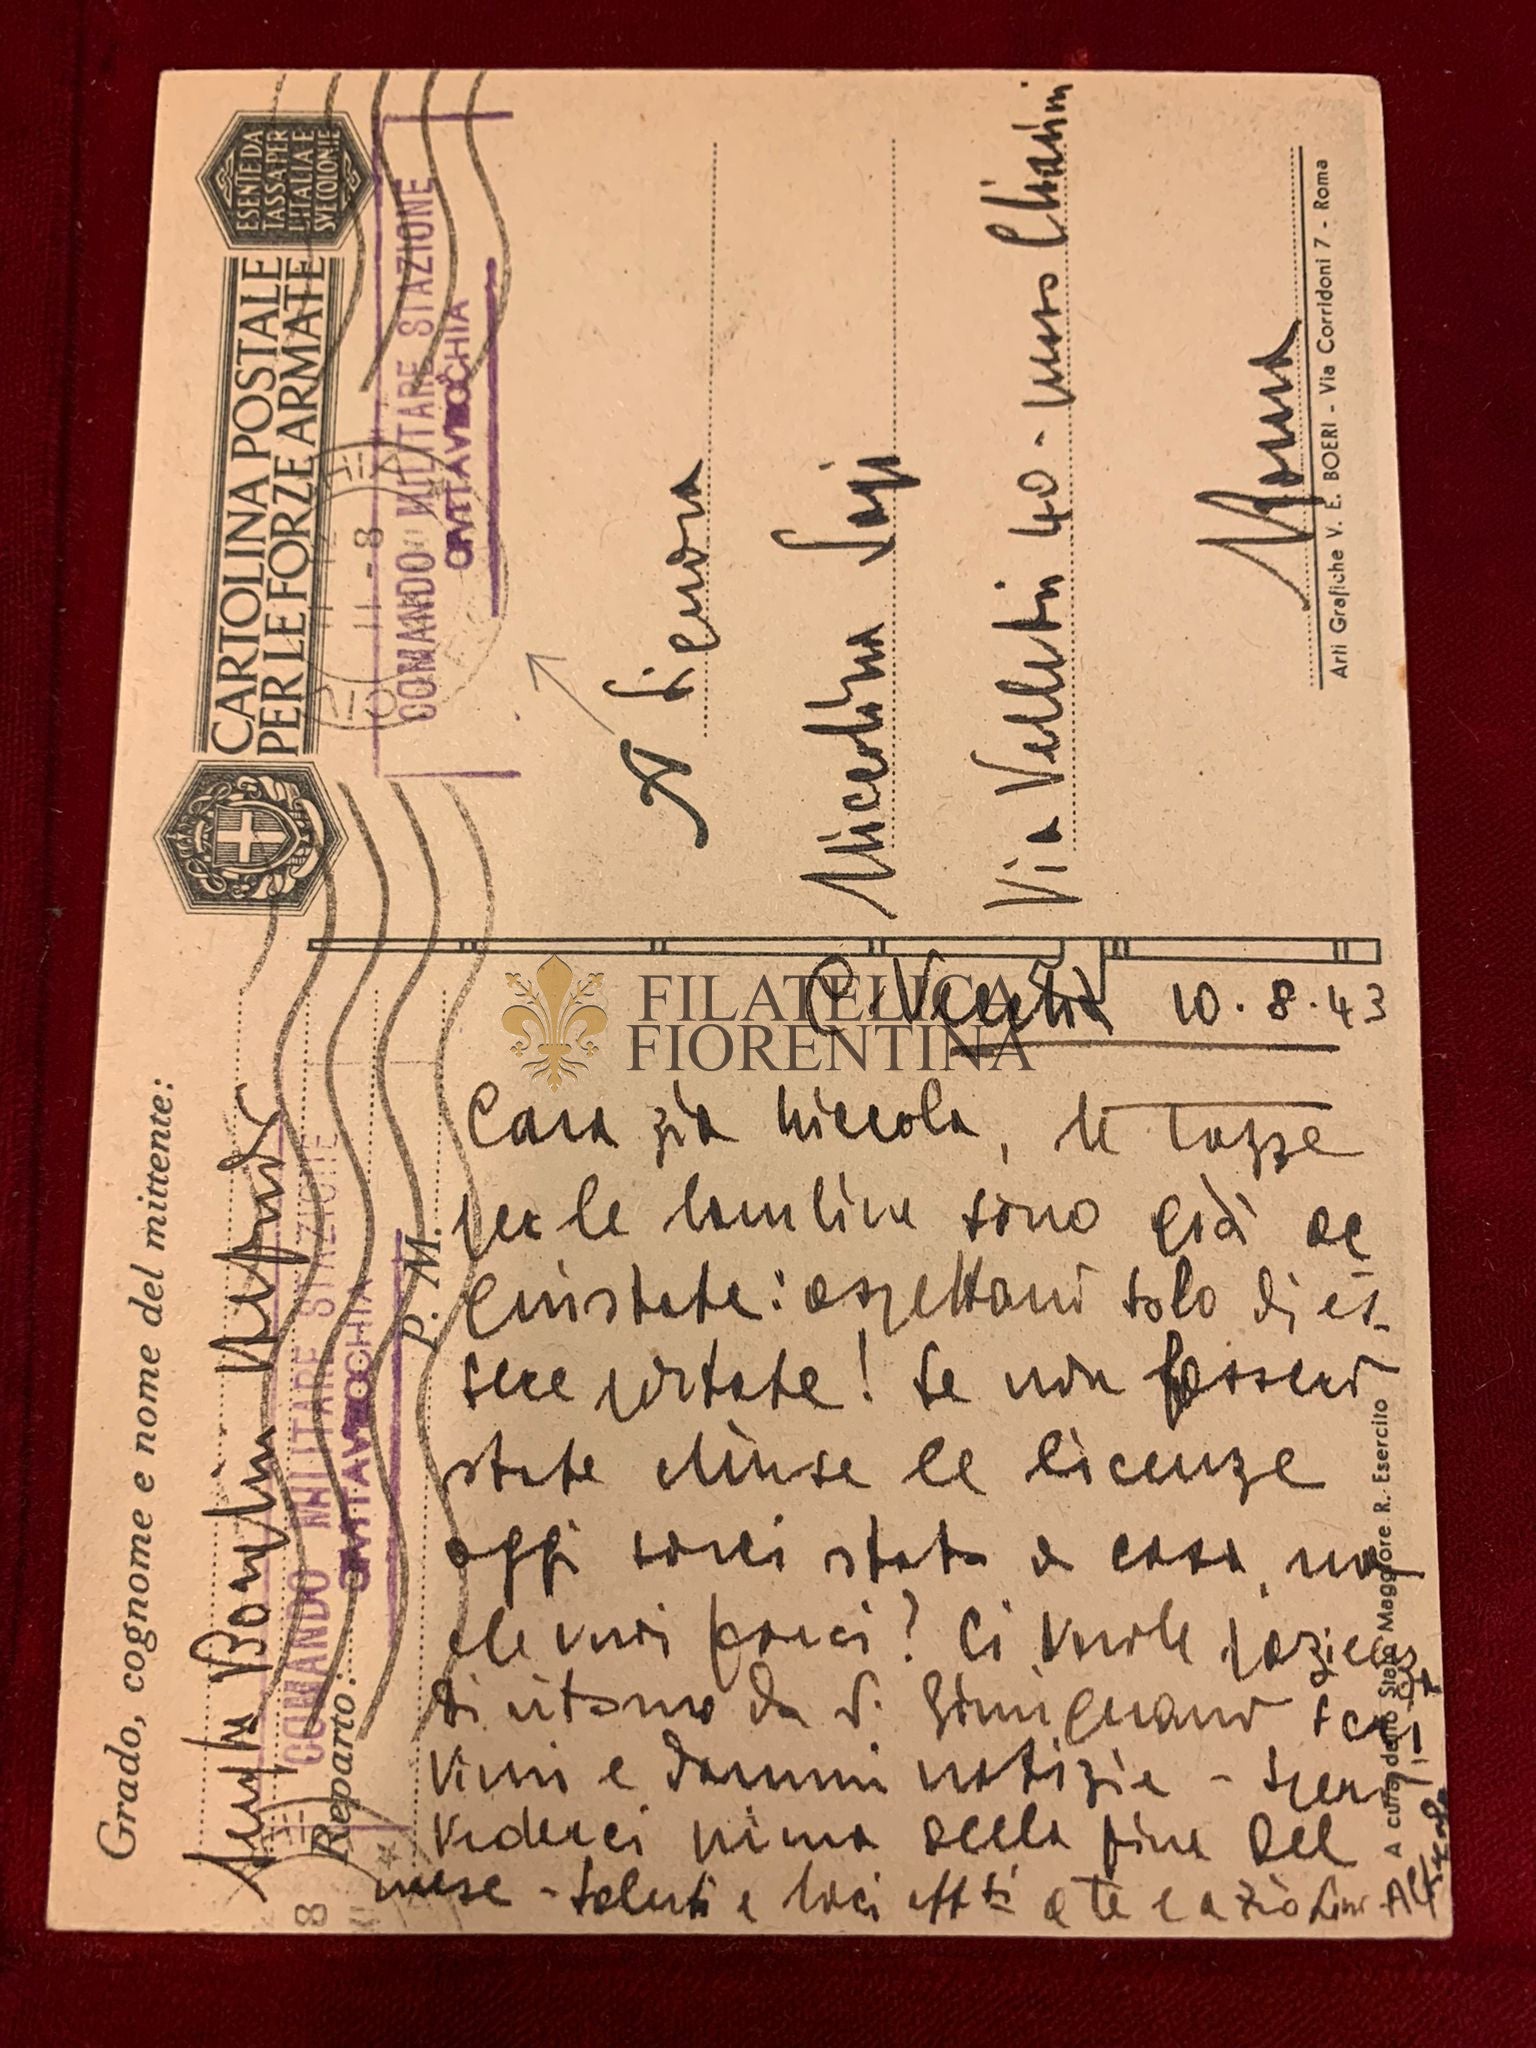 CARTOLINA POSTALE
PER LE FORZE ARMATE
ESENTE DA
TASSA PER
L'ITALIA E
SVE COLONIE
COMANDO MILITARE STAZIONE
CIVITAVECCHIA
11-8
Grado, cognome e nome del mittente:
COMANDO MILITARE STAZIONE
CIVITAVECCHIA
Reparto:
P. M.
8
A Signora
Niccolina
Via Velletri 40 - presso Chiarini
Roma
Arti Grafiche V. E. BOERI - Via Corridoni 7 - Roma
FILATELICA
FIORENTINA
C. Vecchia 10.8.43
Cara zia Niccola, le tazze
per le bambine sono già ac
quistate: aspettano solo di es-
sere portate! Se non fossero
state chiuse le licenze
oggi sarei stato a casa, ma
che vuoi farci? Ci vuole
Di ritorno da S. Gimignano scri
vimi e dammi notizie - Spero
vederci prima della fine del
mese - Saluti e baci aff.ti a te e a zio
A cura dello Stato Maggiore R. Esercito